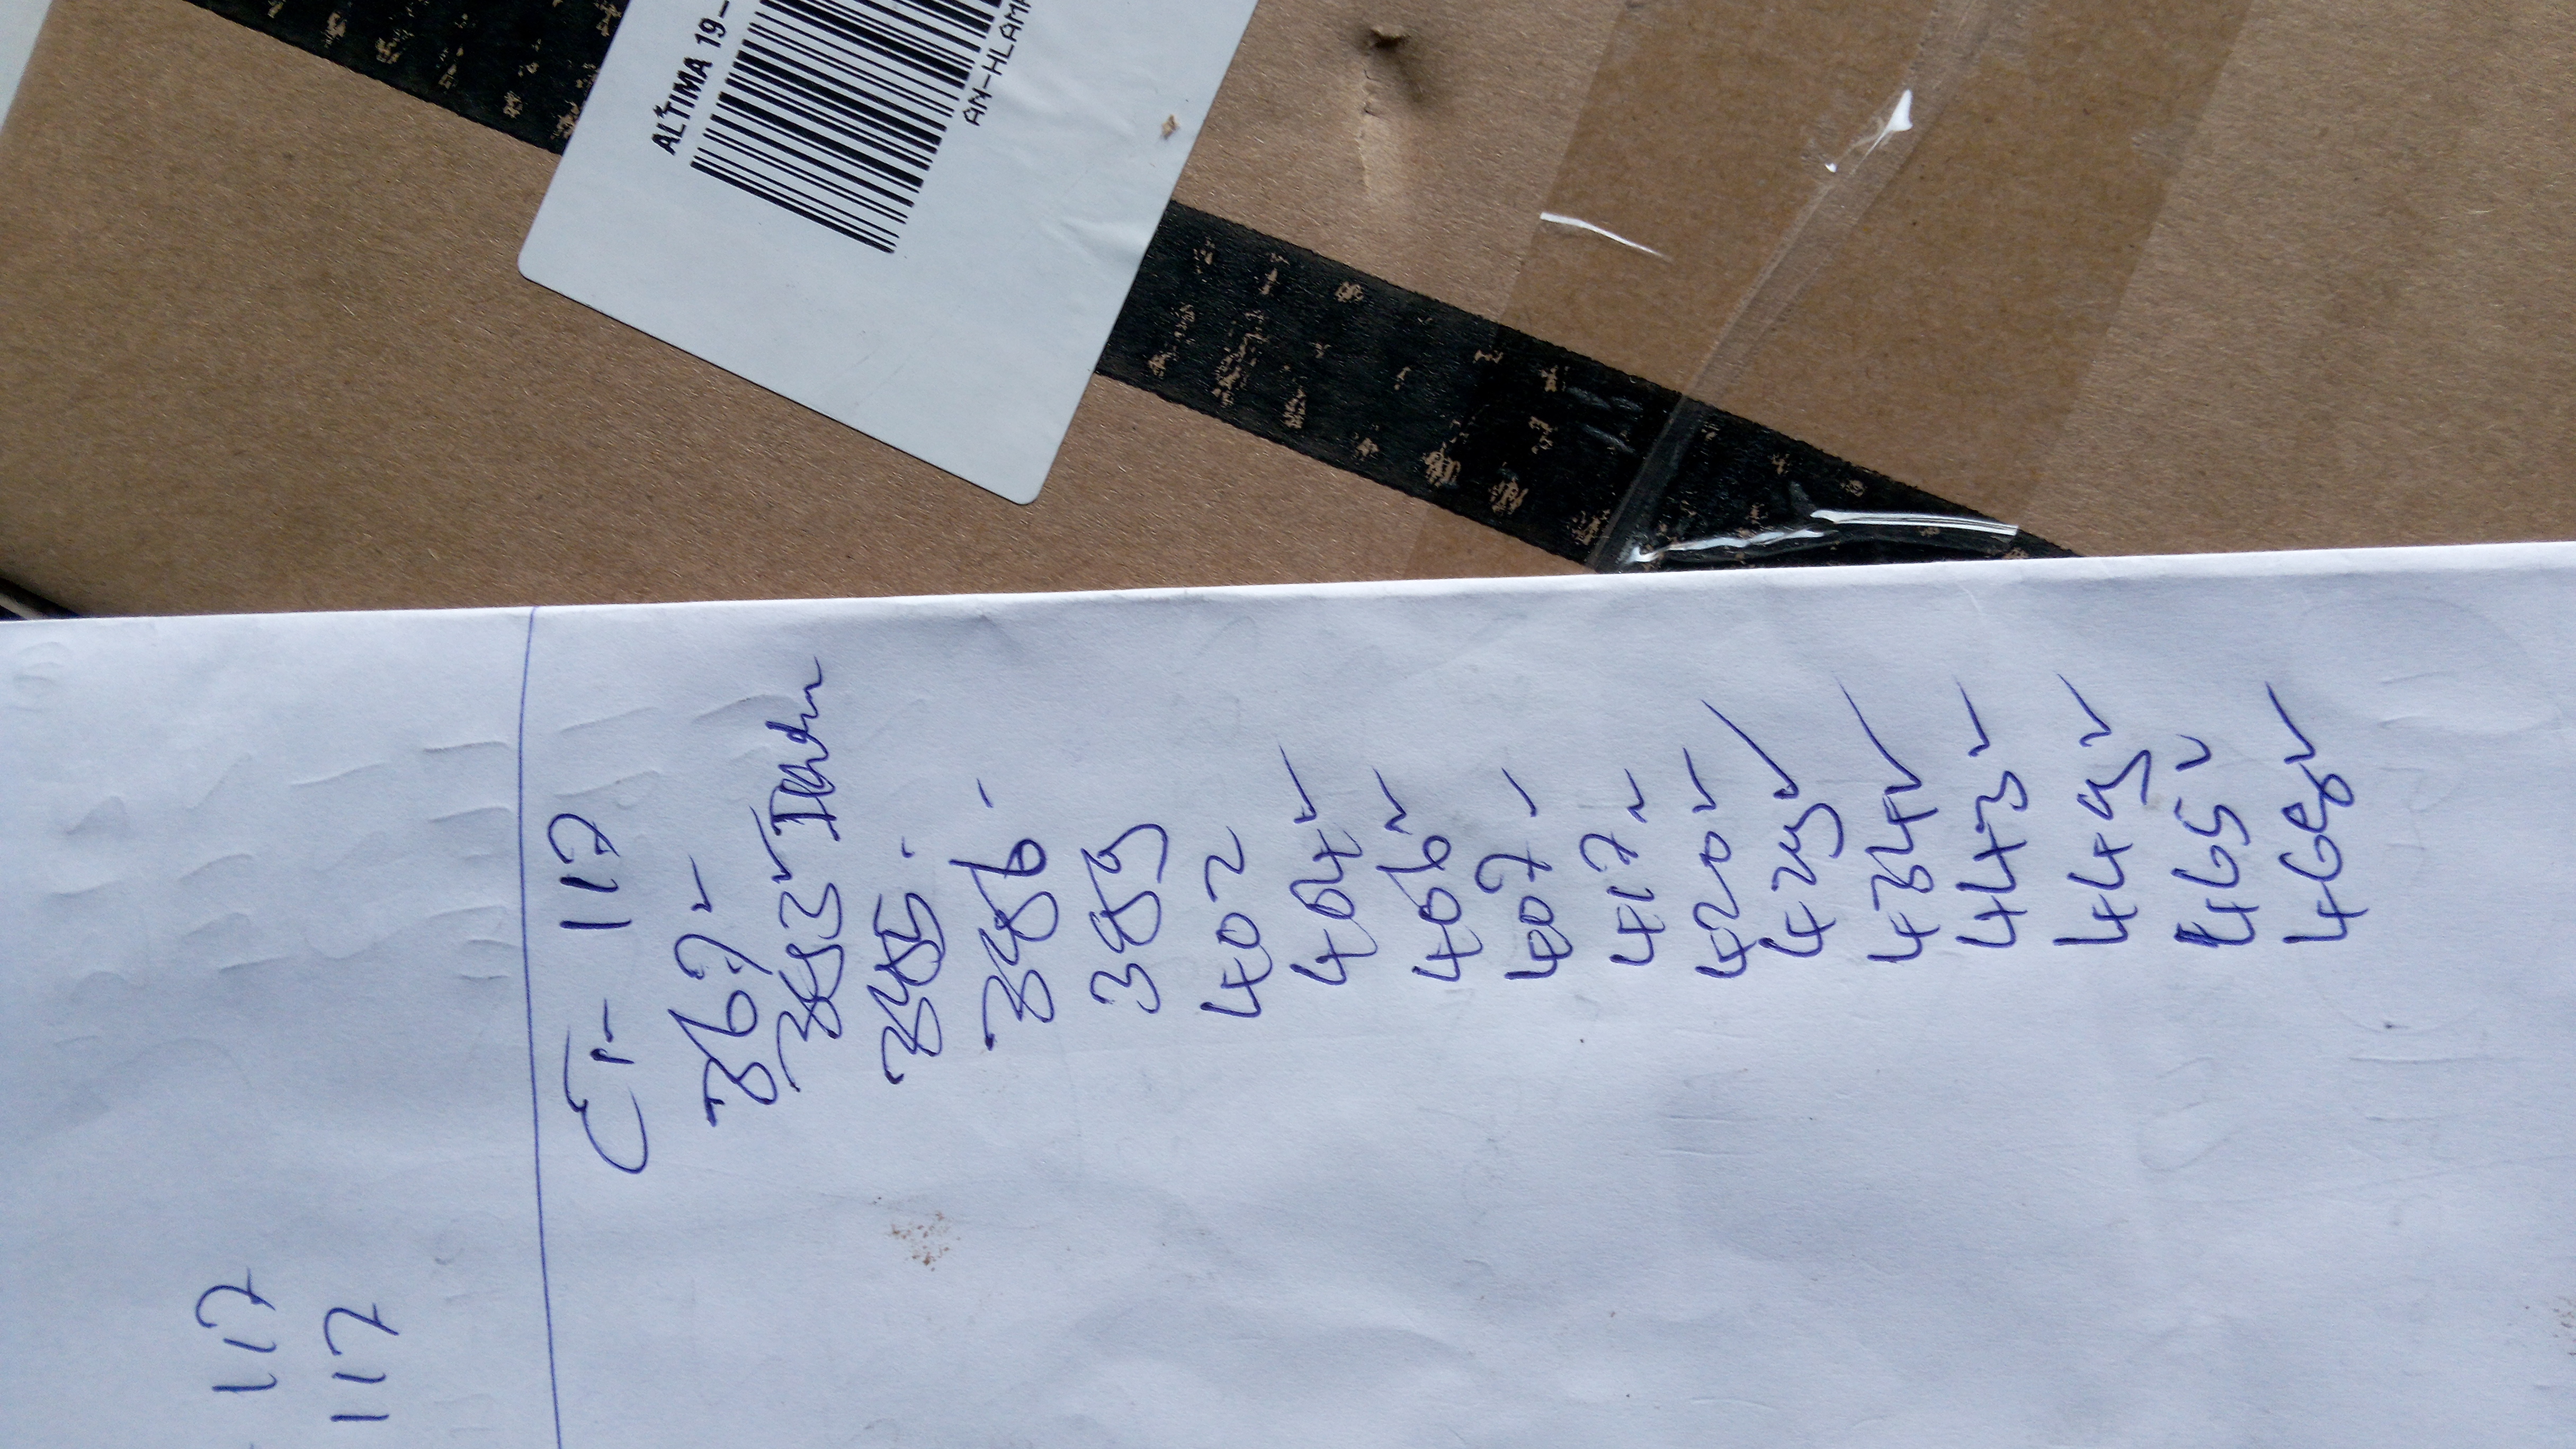 ALTIMA 19-
AN-HLAM
117
117
Er- 117
367 ✓
383 ✓
385.
386 -
389
402
404 ✓
406 ✓
407 ✓
417 ✓
420 ✓
429 ✓
434 ✓
443 ✓
449 ✓
465 ✓
468 ✓